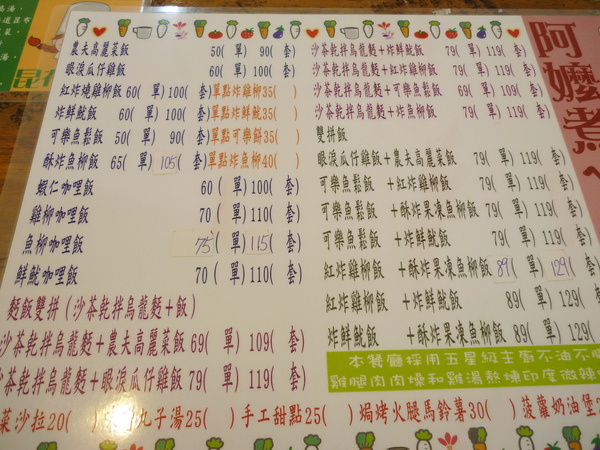 農夫高麗菜飯 50( 單) 90( 套)
眼淚瓜仔雞飯 60( 單)100( 套)
紅炸燒雞柳飯 60( 單)100( 套)單點炸雞柳35( )
炸鮮魷飯 60( 單)100( 套)單點炸鮮魷35( )
可樂魚鬆飯 50( 單) 90( 套)單點可樂餅35( )
酥炸魚柳飯 65( 單)105( 套)單點炸魚柳40( )
蝦仁咖哩飯 60( 單)100( 套)
雞柳咖哩飯 70( 單)110( 套)
魚柳咖哩飯 75( 單)115( 套)
鮮魷咖哩飯 70( 單)110( 套)
麵飯雙拼(沙茶乾拌烏龍麵+飯)
沙茶乾拌烏龍麵+農夫高麗菜飯 69( 單) 109( 套)
沙茶乾拌烏龍麵+眼淚瓜仔雞飯 79( 單) 119( 套)
沙茶乾拌烏龍麵+炸鮮魷飯 79( 單)119( 套)
沙茶乾拌烏龍麵+紅炸雞柳飯 79( 單)119( 套)
沙茶乾拌烏龍麵+可樂魚鬆飯 69( 單)109( 套)
沙茶乾拌烏龍麵+炸魚柳飯 79( 單)119( 套)
雙拼飯
眼淚瓜仔雞飯+農夫高麗菜飯 79( 單)119( 套)
可樂魚鬆飯 +紅炸雞柳飯 79( 單)119( 套)
可樂魚鬆飯 +酥炸果凍魚柳飯 79( 單)119( 套)
可樂魚鬆飯 +炸鮮魷飯 79( 單)119( 套)
紅炸雞柳飯 +酥炸果凍魚柳飯 89( 單)129( 套)
紅炸雞柳飯 +炸鮮魷飯 89( 單)129(
炸鮮魷飯 +酥炸果凍魚柳飯 89( 單)129(
本餐廳採用五星級主廚不油不
雞腿肉肉燥和雞湯熬煉印度微辣
菜沙拉20( ) 丸子湯25( )手工甜點25( )焗烤火腿馬鈴薯30( )菠蘿奶油堡
阿嬤煮